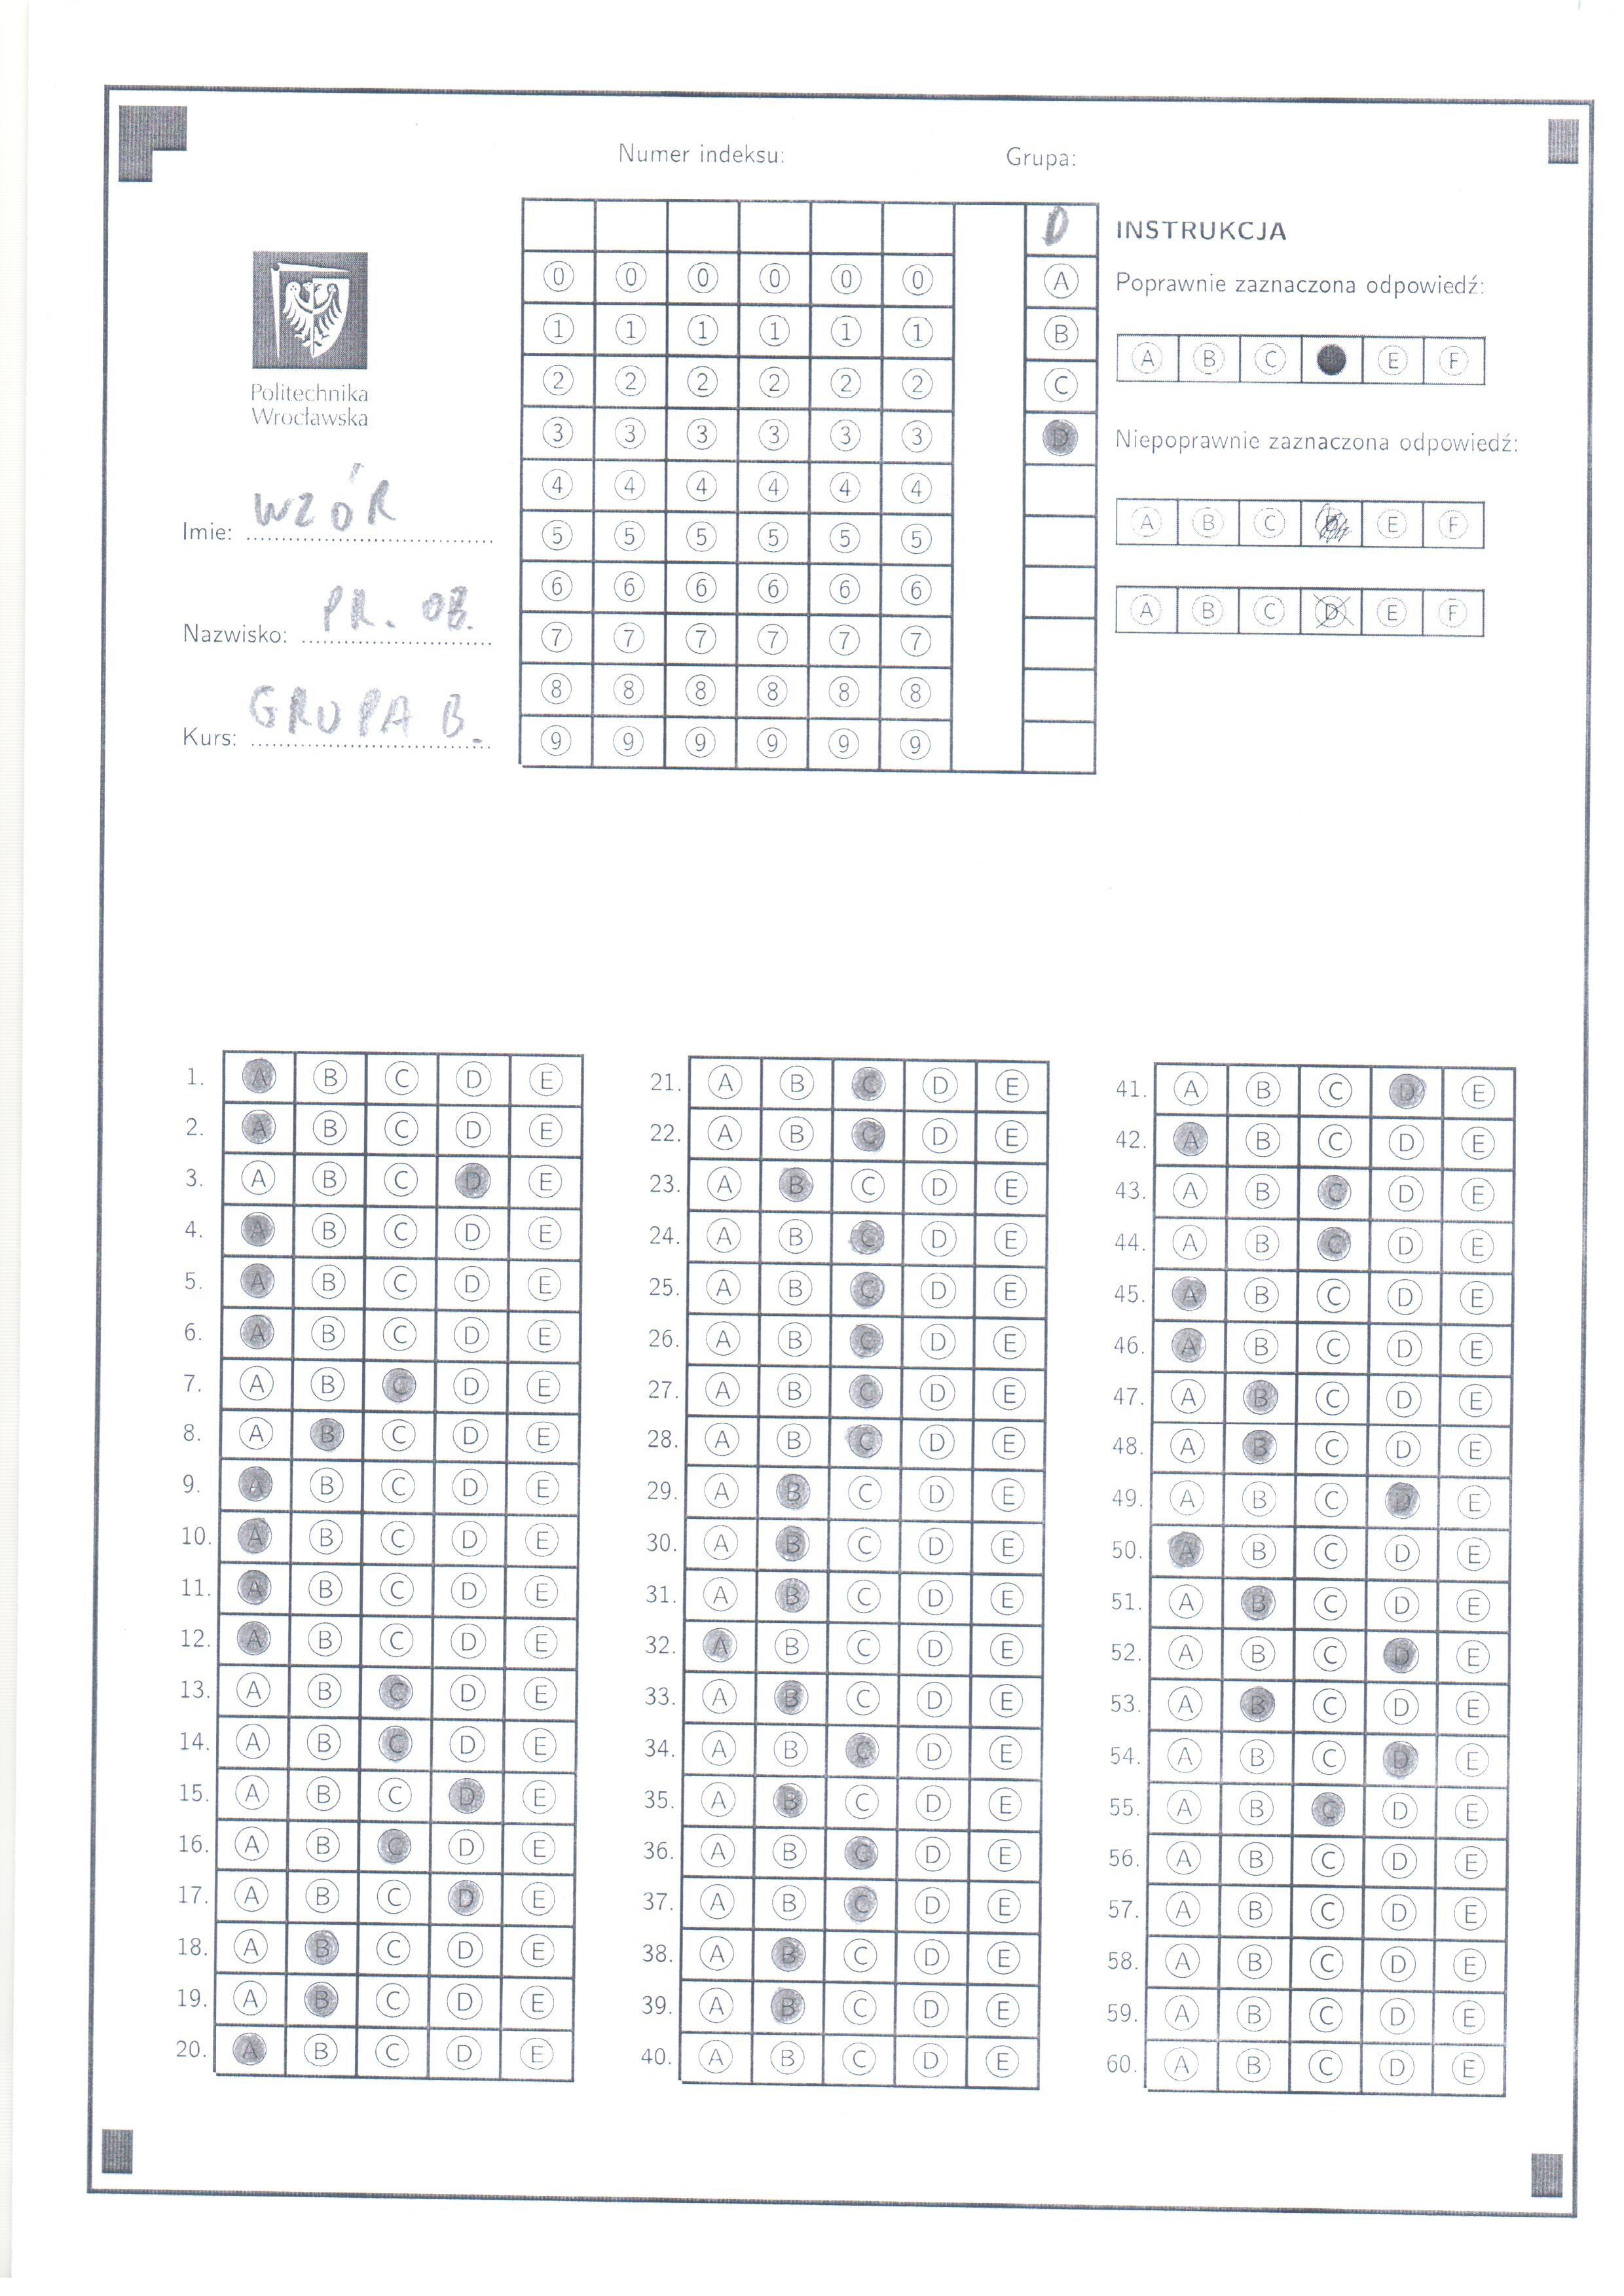 Numer indeksu: Grupa:
D
0 0 0 0 0 0 A
1 1 1 1 1 1 B
2 2 2 2 2 2 C
3 3 3 3 3 3 D
4 4 4 4 4 4
5 5 5 5 5 5
6 6 6 6 6 6
7 7 7 7 7 7
8 8 8 8 8 8
9 9 9 9 9 9
Politechnika
Wrocławska
Imie: WZÓR
Nazwisko: PR. OB.
Kurs: GRUPA B.
INSTRUKCJA
Poprawnie zaznaczona odpowiedź:
A B C E F
Niepoprawnie zaznaczona odpowiedź:
A B C D E F
A B C D E F
1. A B C D E
2. A B C D E
3. A B C D E
4. A B C D E
5. A B C D E
6. A B C D E
7. A B C D E
8. A B C D E
9. A B C D E
10. A B C D E
11. A B C D E
12. A B C D E
13. A B C D E
14. A B C D E
15. A B C D E
16. A B C D E
17. A B C D E
18. A B C D E
19. A B C D E
20. A B C D E
21. A B C D E
22. A B C D E
23. A B C D E
24. A B C D E
25. A B C D E
26. A B C D E
27. A B C D E
28. A B C D E
29. A B C D E
30. A B C D E
31. A B C D E
32. A B C D E
33. A B C D E
34. A B C D E
35. A B C D E
36. A B C D E
37. A B C D E
38. A B C D E
39. A B C D E
40. A B C D E
41. A B C D E
42. A B C D E
43. A B C D E
44. A B C D E
45. A B C D E
46. A B C D E
47. A B C D E
48. A B C D E
49. A B C D E
50. A B C D E
51. A B C D E
52. A B C D E
53. A B C D E
54. A B C D E
55. A B C D E
56. A B C D E
57. A B C D E
58. A B C D E
59. A B C D E
60. A B C D E